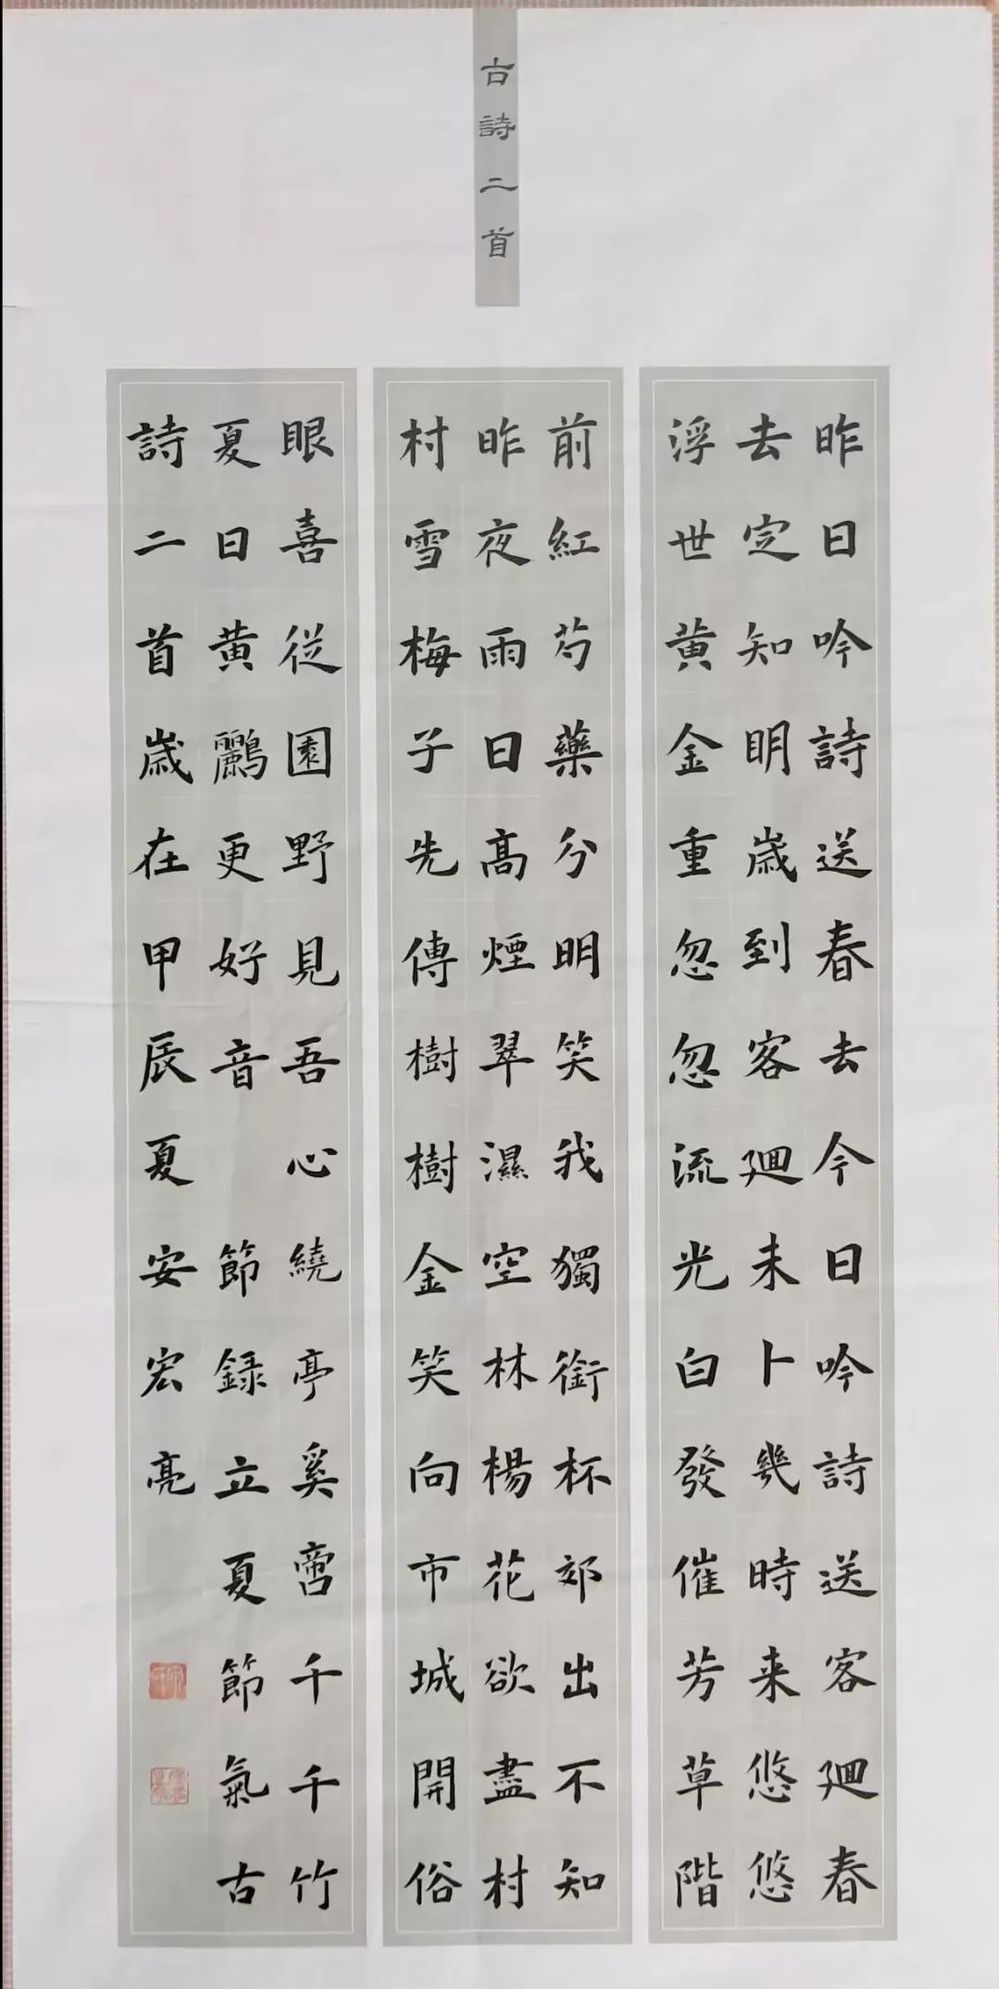 古詩二首
昨日吟詩送春去今日吟詩送客廻春
去定知明歲到客廻未卜幾時来悠悠
浮世黄金重忽忽流光白發催芳草階
前紅芍藥分明笑我獨銜杯郊出不知
昨夜雨日高煙翠濕空林楊花欲盡村
村雪梅子先傳樹樹金笑向市城開俗
眼喜從園野見吾心繞亭奚啻千千竹
夏日黄鸝更好音 節録立夏節氣古
詩二首歲在甲辰夏安宏亮